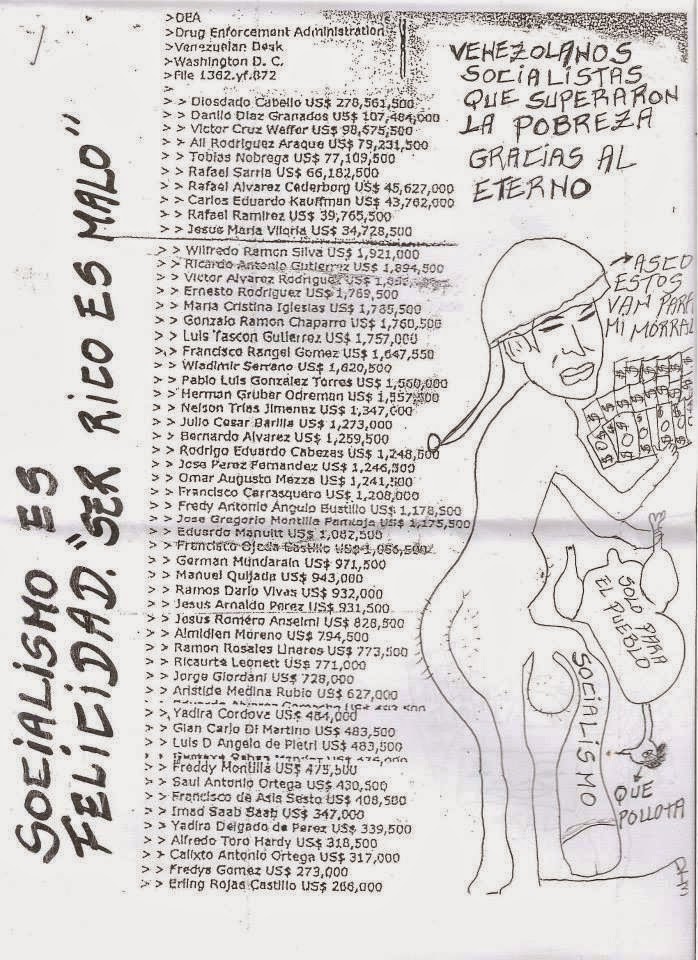 >DEA
>Drug Enforcement Administration
>Venezuelan Desk
>Washington D. C.
>File 1362.yf.872
> > Diosdado Cabello US$ 278,561,500
> > Danilo Diaz Granados US$ 107,484,000
> > Victor Cruz Weffer US$ 98,575,500
> > Ali Rodriguez Araque US$ 79,231,500
> > Tobias Nobrega US$ 77,109,500
> > Rafael Sarria US$ 66,182,500
> > Rafael Alvarez Cederborg US$ 45,627,000
> > Carlos Eduardo Kauffman US$ 43,762,000
> > Rafael Ramirez US$ 39,765,500
> > Jesus Maria Viloria US$ 34,728,500
> > Wilfredo Ramon Silva US$ 1,921,000
> > Ricardo Antonio Gutierrez US$ 1,894,500
> > Victor Alvarez Rodriguez US$
> > Ernesto Rodriguez US$ 1,769,500
> > Maria Cristina Iglesias US$ 1,765,500
> > Gonzalo Ramon Chaparro US$ 1,760,500
> > Luis Tascon Gutierrez US$ 1,757,000
> > Francisco Rangel Gomez US$ 1,647,550
> > Wladimir Serrano US$ 1,620,500
> > Pablo Luis González Torres US$ 1,560,000
> > Herman Gruber Odreman US$ 1,557,500
> > Nelson Trias Jimenez US$ 1,347,000
> > Julio Cesar Barilla US$ 1,273,000
> > Bernardo Alvarez US$ 1,259,500
> > Rodrigo Eduardo Cabezas US$ 1,248,500
> > Jose Perez Fernandez US$ 1,246,500
> > Omar Augusto Mezza US$ 1,241,500
> > Francisco Carrasquero US$ 1,208,000
> > Fredy Antonio Ángulo Bustillo US$ 1,178,500
> > Jose Gregorio Montilla Pantoja US$ 1,175,500
> > Eduardo Manuitt US$ 1,062,500
> > Francisco Ojeda Castillo US$ 1,056,500
> > German Mundarain US$ 971,500
> > Manuel Quijada US$ 943,000
> > Ramos Dario Vivas US$ 932,000
> > Jesus Arnaldo Perez US$ 931,500
> > Josus Roméro Anselmi US$ 828,500
> > Almidien Moreno US$ 794,500
> > Ramon Rosales Linares US$ 773,500
> > Ricaurte Leonett US$ 771,000
> > Jorge Giordani US$ 728,000
> > Aristide Medina Rubio US$ 627,000
> > Yadira Cordova US$ 484,000
> > Gian Carlo Di Martino US$ 483,500
> > Luis D Angelo de Pietri US$ 483,500
> > Freddy Montilla US$ 475,500
> > Saul Antonio Ortega US$ 430,500
> > Francisco de Asis Sesto US$ 408,500
> > Imad Saab Saab US$ 347,000
> > Yadira Delgado de Perez US$ 339,500
> > Alfredo Toro Hardy US$ 318,500
> > Calixto Antonio Ortega US$ 317,000
> > Fredys Gomez US$ 273,000
> > Erling Rojas Castillo US$ 266,000
SOCIALISMO ES
FELICIDAD. "SER RICO ES MALO"
VENEZOLANOS
SOCIALISTAS
QUE SUPERARON
LA POBREZA
GRACIAS AL
ETERNO
ASCO
ESTOS
VAN PARA
MI MORRAL
SOLO PARA
EL PUEBLO
SOCIALISMO
QUE
POLLOTA